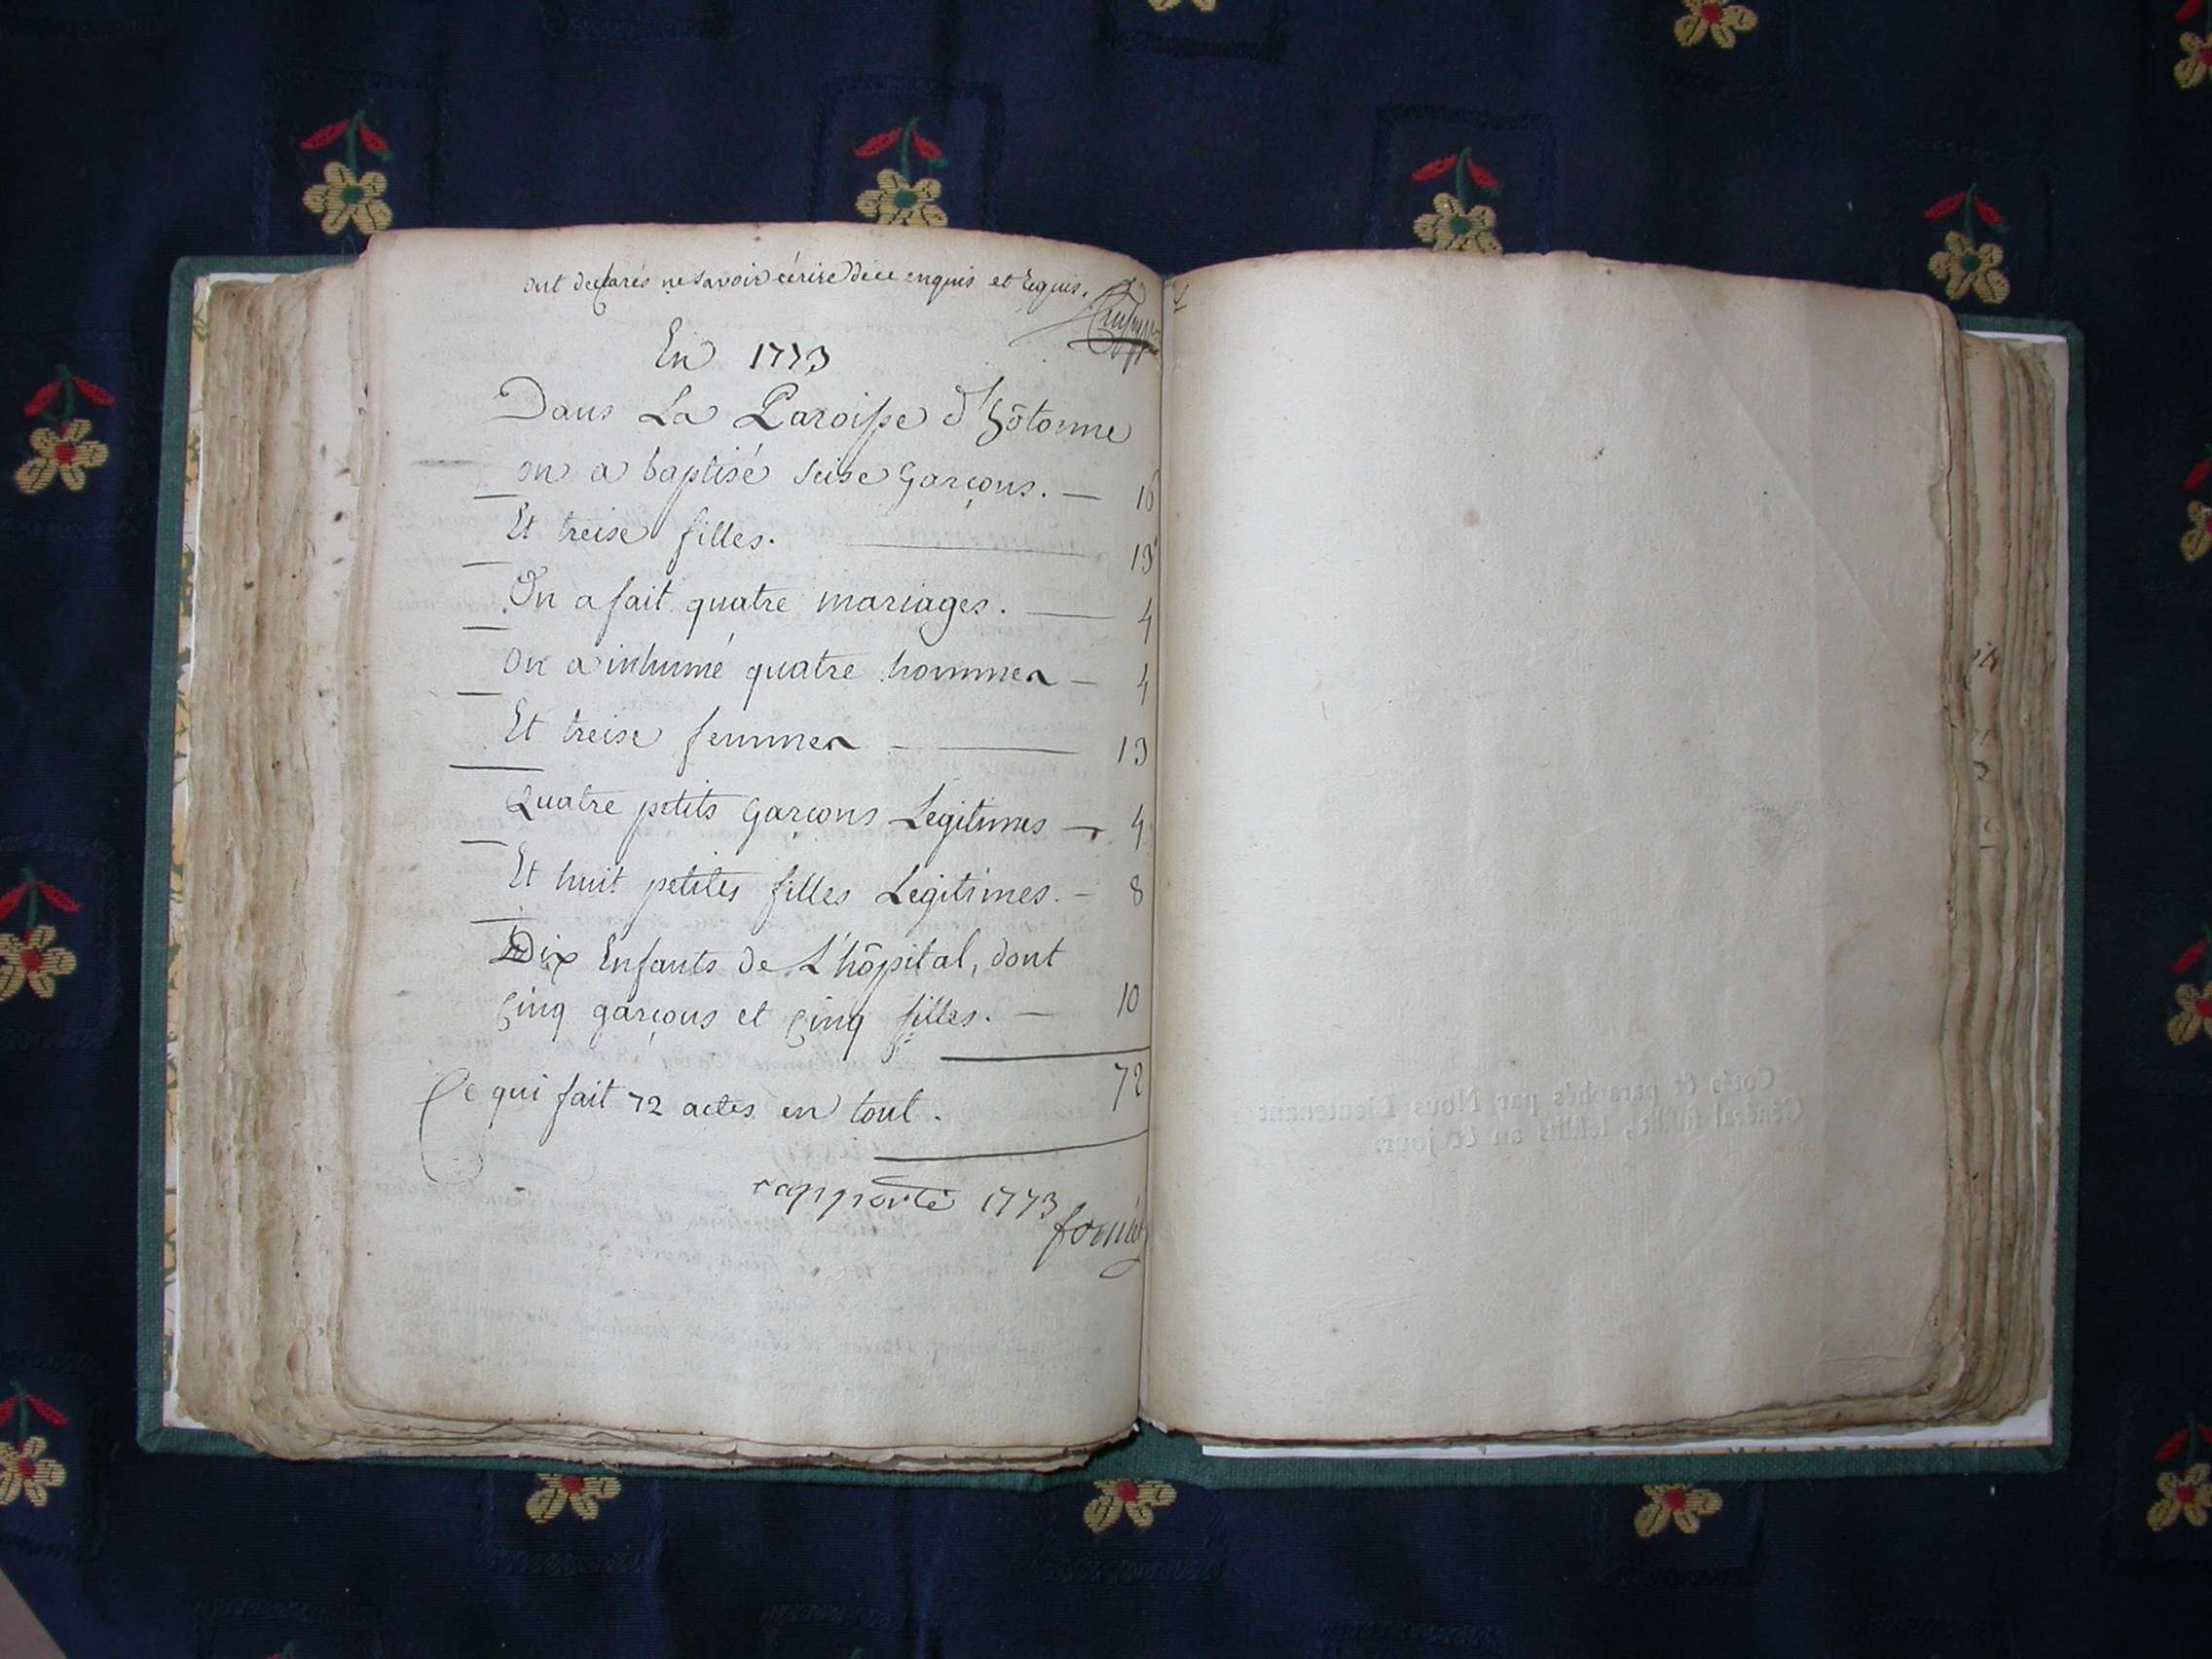 ont declarés ne savoir écrire de ce enquis et requis.
En 1773
Dans La Paroisse d'hôtonne
on a baptisé seise Garçons. — 16
Et treise filles. — 13
On a fait quatre mariages. — 4
On a inhumé quatre hommes — 4
Et treise femmes — 13
Quatre petits Garçons Legitimes — 4
Et huit petites filles Legitimes. — 8
Dix Enfants de L'hôpital, dont
Cinq garçons et Cinq filles. — 10
72
Ce qui fait 72 actes en tout.
rapporté 1773
Cottés & paraphés par Nous Lieutenant
Général susdit, lesdits an & jour.